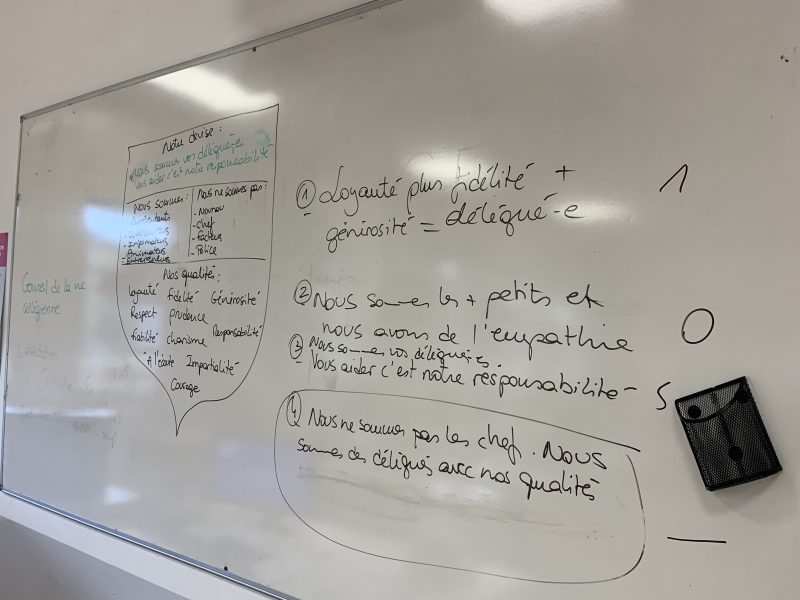 Notre devise :
Nous sommes vos délégué-e-s
Vous aider c'est notre responsabilité
Nous sommes :
- Informateurs
- Animateurs
- Entrepreneurs
Nous ne sommes pas :
- Nounou
- chef
- facteurs
- Police
Nos qualités :
loyauté fidélité Générosité
Respect prudence
Responsabilité
fiabilité charisme
"A l'écoute Impartialité
Courage
Conseil de la vie
collégienne
① Loyauté plus fidélité +
génirosité = délégué-e
1
② Nous sommes les + petits et
nous avons de l'empathie
0
③ Nous sommes vos délégué.es.
Vous aider c'est notre responsabilite
5
④ Nous ne sommes pas les chef. Nous
sommes des délégués avec nos qualités
—